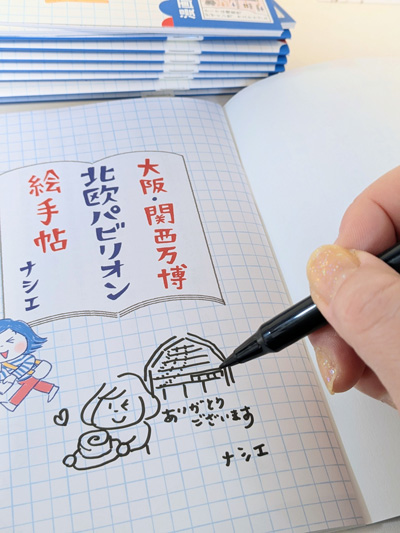 大阪・関西万博
北欧パビリオン
絵手帖
ナシエ
ありがとう
ございます
ナシエ